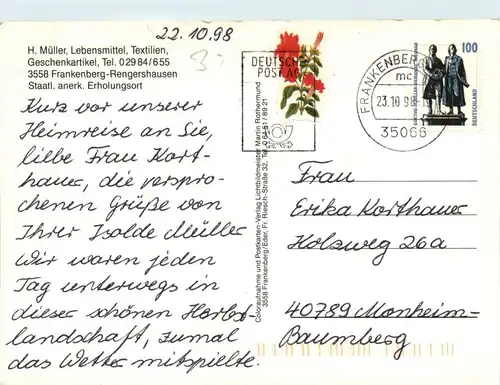 22.10.98
3-
H. Müller, Lebensmittel, Textilien,
Geschenkartikel, Tel. 02984/655
3558 Frankenberg-Rengershausen
Staatl. anerk. Erholungsort
Kurz vor unserer
Heimreise an Sie,
liebe Frau Kort-
hauer, die verspro-
chenen Grüße von
Ihrer Isolde Müller
Wir waren jeden
Tag unterwegs in
dieser schönen Herbst-
landschaft, zumal
das Wetter mitspielte.
Coloraufnahme und Postkarten-Verlag Lichtbildmeister Martin Rothermund
3558 Frankenberg/Eder, Fr. Riesch-Straße 32, Tel. 0 64 51 / 89 21
DEUTSCHE
POST AG
FRANKENBERG
mc
23.10.98
35066
100
DEUTSCHLAND
Frau
Erika Korthauer
Holzweg 26a
40789 Monheim-
Baumberg